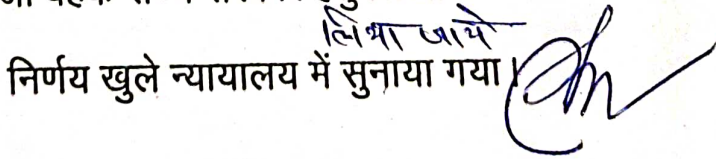 लिया जाये
निर्णय खुले न्यायालय में सुनाया गया।